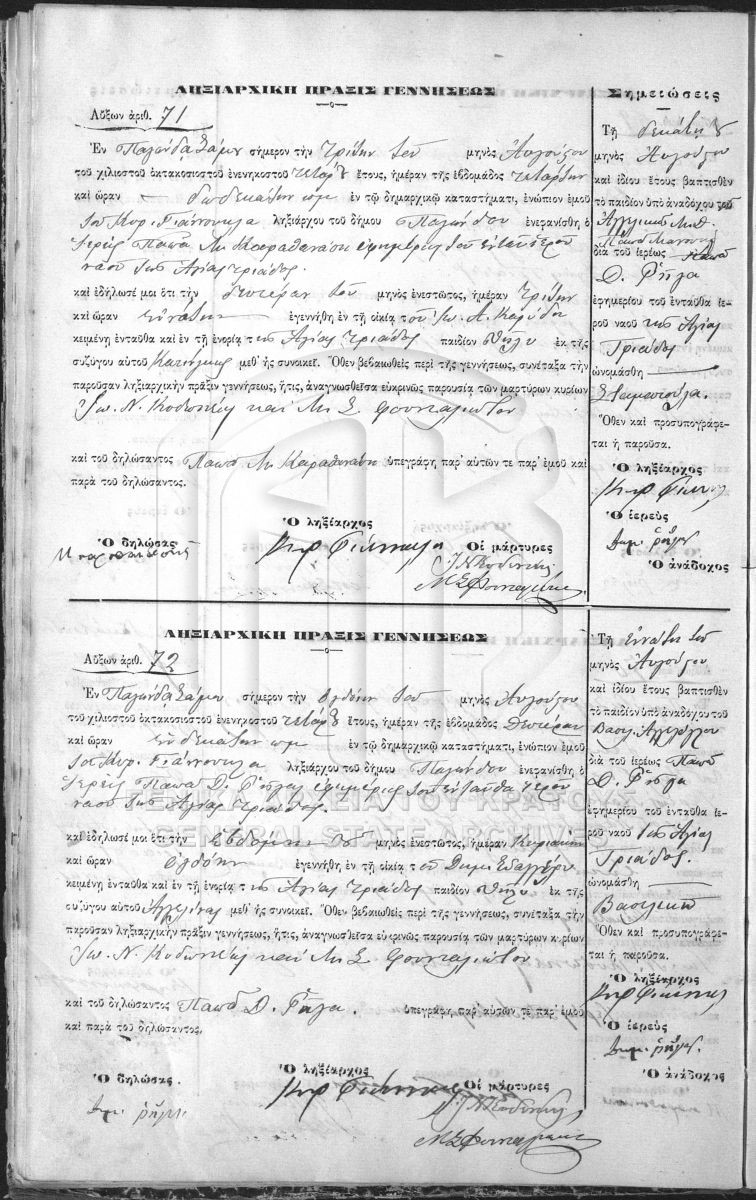 ΛΗΞΙΑΡΧΙΚΗ ΠΡΑΞΙΣ ΓΕΝΝΗΣΕΩΣ
Αὔξων ἀριθ. 71
Ἐν Παγώνδα Σάμου σήμερον τὴν τρίτην τοῦ μηνὸς Αὐγούστου
τοῦ χιλιοστοῦ ὀκτακοσιοστοῦ ἐνενηκοστοῦ τετάρτου ἔτους, ἡμέραν τῆς ἑβδομάδος τετάρτην
καὶ ὥραν δωδεκάτην πμ ἐν τῷ δημαρχικῷ καταστήματι, ἐνώπιον ἐμοῦ
τοῦ Κυρ. Γιάννουλα ληξιάρχου τοῦ δήμου Παγώνδου ἐνεφανίσθη ὁ
ἱερεὺς Παπᾶ Καραθανάση ἐφημέριος τοῦ ἐνταῦθα ἱεροῦ
ναοῦ τῆς Ἁγίας Τριάδος
καὶ ἐδήλωσέ μοι ὅτι τὴν δευτέραν τοῦ μηνὸς ἐνεστῶτος, ἡμέραν τρίτην
καὶ ὥραν ἐννάτην ἐγεννήθη ἐν τῇ οἰκίᾳ τοῦ Ἰω. Α.
κειμένῃ ἐνταῦθα καὶ ἐν τῇ ἐνορίᾳ τῆς Ἁγίας Τριάδος παιδίον θῆλυ ἐκ τῆς
συζύγου αὐτοῦ μεθ' ἧς συνοικεῖ. Ὅθεν βεβαιωθεὶς περὶ τῆς γεννήσεως, συνέταξα τὴν
παροῦσαν ληξιαρχικὴν πρᾶξιν γεννήσεως, ἥτις, ἀναγνωσθεῖσα εὐκρινῶς παρουσίᾳ τῶν μαρτύρων κυρίων
Ἰω. Ν. καὶ Σ.
καὶ τοῦ δηλώσαντος Παπᾶ Καραθανάση ὑπεγράφη παρ' αὐτῶν τε παρ' ἐμοῦ καὶ
παρὰ τοῦ δηλώσαντος.
Ὁ δηλώσας
Ὁ ληξίαρχος
Κυρ Γιάννουλα
Οἱ μάρτυρες
Σημειώσεις
Τῇ δεκάτῃ
μηνὸς Αὐγούστου
καὶ ἰδίου ἔτους βαπτισθὲν
τὸ παιδίον ὑπὸ ἀναδόχου τοῦ
διὰ τοῦ ἱερέως Παπᾶ
Δ. Ρήγα
ἐφημερίου τοῦ ἐνταῦθα ἱε-
ροῦ ναοῦ τῆς Ἁγίας
Τριάδος
ὠνομάσθη
Σταματούλα.
Ὅθεν καὶ προσυπογράφε-
ται ἡ παροῦσα.
Ὁ ληξίαρχος
Κυρ Γιάννουλα
Ὁ ἱερεὺς
Δημ. ρήγας
Ὁ ἀνάδοχος
ΛΗΞΙΑΡΧΙΚΗ ΠΡΑΞΙΣ ΓΕΝΝΗΣΕΩΣ
Αὔξων ἀριθ. 72
Ἐν Παγώνδα Σάμου σήμερον τὴν ὀγδόην τοῦ μηνὸς Αὐγούστου
τοῦ χιλιοστοῦ ὀκτακοσιοστοῦ ἐνενηκοστοῦ τετάρτου ἔτους, ἡμέραν τῆς ἑβδομάδος Δευτέραν
καὶ ὥραν ἑνδεκάτην πμ ἐν τῷ δημαρχικῷ καταστήματι, ἐνώπιον ἐμοῦ
τοῦ Κυρ. Γιάννουλα ληξιάρχου τοῦ δήμου Παγώνδου ἐνεφανίσθη ὁ
ἱερεὺς Παπᾶ Δ. Ρήγας ἐφημέριος τοῦ ἐνταῦθα ἱεροῦ
ναοῦ τῆς Ἁγίας Τριάδος.
ΓΕΝΙΚΑ ΑΡΧΕΙΑ ΤΟΥ ΚΡΑΤΟΥΣ
GENERAL STATE ARCHIVES
καὶ ἐδήλωσέ μοι ὅτι τὴν ἑβδόμην τοῦ μηνὸς ἐνεστῶτος, ἡμέραν Κυριακὴν
καὶ ὥραν ὀγδόην ἐγεννήθη ἐν τῇ οἰκίᾳ τοῦ Δημ.
κειμένῃ ἐνταῦθα καὶ ἐν τῇ ἐνορίᾳ τῆς Ἁγίας Τριάδος παιδίον θῆλυ ἐκ τῆς
συζύγου αὐτοῦ Ἀγγελίνας μεθ' ἧς συνοικεῖ. Ὅθεν βεβαιωθεὶς περὶ τῆς γεννήσεως, συνέταξα τὴν
παροῦσαν ληξιαρχικὴν πρᾶξιν γεννήσεως, ἥτις, ἀναγνωσθεῖσα εὐκρινῶς παρουσίᾳ τῶν μαρτύρων κυρίων
Ἰω. Ν. καὶ Σ.
καὶ τοῦ δηλώσαντος Παπᾶ Δ. Ρήγα. ὑπεγράφη παρ' αὐτῶν τε παρ' ἐμοῦ
καὶ παρὰ τοῦ δηλώσαντος.
Ὁ δηλώσας
Δημ. ρήγας
Ὁ ληξίαρχος
Κυρ Γιάννουλα
Οἱ μάρτυρες
Τῇ ἐννάτῃ τοῦ
μηνὸς Αὐγούστου
καὶ ἰδίου ἔτους βαπτισθὲν
τὸ παιδίον ὑπὸ ἀναδόχου τοῦ
Βασιλ.
διὰ τοῦ ἱερέως Παπᾶ
Δ. Ρήγα
ἐφημερίου τοῦ ἐνταῦθα ἱε-
ροῦ ναοῦ τῆς Ἁγίας
Τριάδος
ὠνομάσθη
Βασιλικὴ
Ὅθεν καὶ προσυπογράφε-
ται ἡ παροῦσα.
Ὁ ληξίαρχος
Κυρ Γιάννουλα
Ὁ ἱερεὺς
Δημ. ρήγας
Ὁ ἀνάδοχος